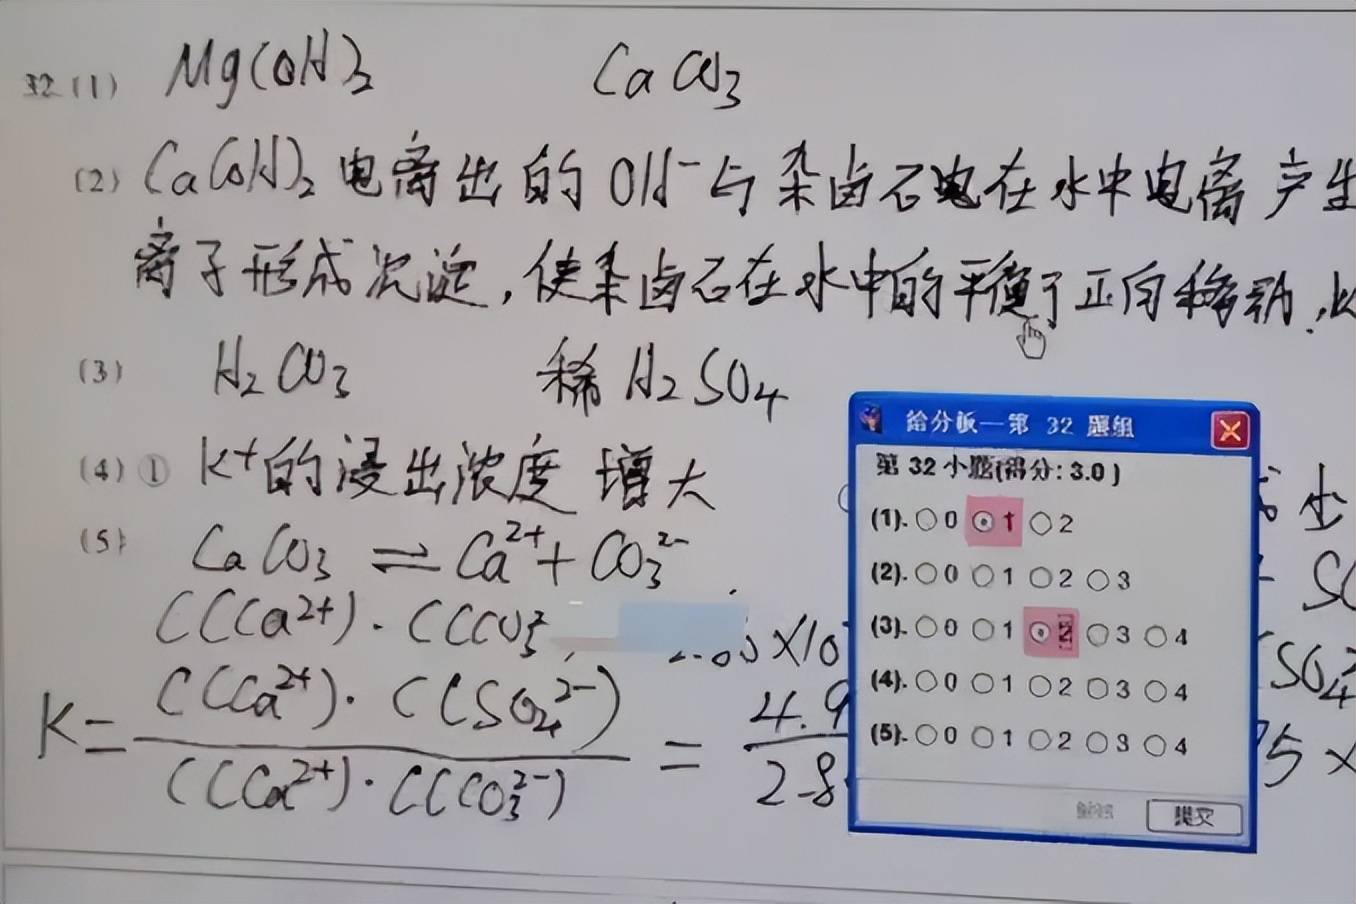 32(1) Mg(OH)₂ CaCO₃
(2) Ca(OH)₂电离出的OH⁻与杂卤石在水中电离产生
离子形成沉淀,使杂卤石在水中的平衡于正向移动,
(3) H₂CO₃ 稀H₂SO₄
(4)① K⁺的浸出浓度增大
(5) CaCO₃ ⇌ Ca²⁺+CO₃²⁻
C(Ca²⁺)·C(CO₃²⁻ ×10
K= C(Ca²⁺)·C(SO₄²⁻) = 4.9
C(Ca²⁺)·C(CO₃²⁻) 2.8
SO₄²
5×
给分板—第 32 题组
第 32 小题(得分: 3.0 )
(1). 0 1 2
(2). 0 1 2 3
(3). 0 1 2 3 4
(4). 0 1 2 3 4
(5). 0 1 2 3 4
提交